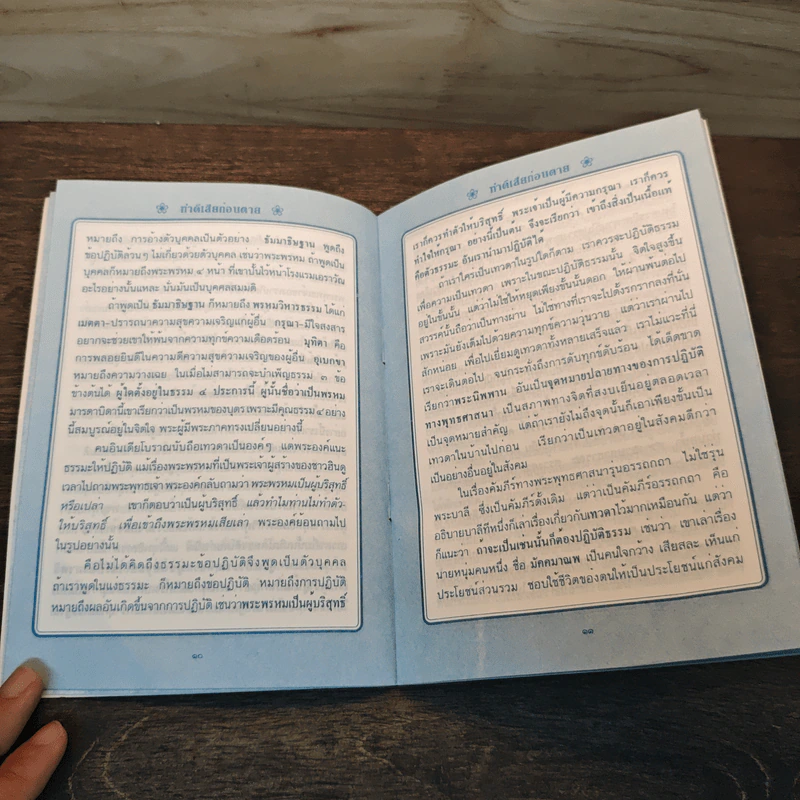 ทำดีเสียก่อนตาย
หมายถึง การอ้างตัวบุคคลเป็นตัวอย่าง ธัมมาธิษฐาน พูดถึง
ข้อปฏิบัติล้วนๆ ไม่เกี่ยวด้วยตัวบุคคล เช่นว่าพระพรหม ถ้าพูดเป็น
บุคคลก็หมายถึงพระพรหม ๔ หน้า ที่เขาปั้นไว้หน้าโรงแรมเอราวัณ
อะไรอย่างนั้นแหละ นั่นมันเป็นบุคคลสมมติ
ถ้าพูดเป็น ธัมมาธิษฐาน ก็หมายถึง พรหมวิหารธรรม ได้แก่
เมตตา-ปรารถนาความสุขความเจริญแก่ผู้อื่น กรุณา-มีใจสงสาร
อยากจะช่วยเขาให้พ้นจากความทุกข์ความเดือดร้อน มุทิตา คือ
การพลอยยินดีในความดีความสุขความเจริญของผู้อื่น อุเบกขา
หมายถึงความวางเฉย ในเมื่อไม่สามารถจะบำเพ็ญธรรม ๓ ข้อ
ข้างต้นได้ ผู้ใดตั้งอยู่ในธรรม ๔ ประการนี้ ผู้นั้นชื่อว่าเป็นพรหม
มารดาบิดานี้เขาเรียกว่าเป็นพรหมของบุตร เพราะมีคุณธรรม ๔ อย่าง
นี้สมบูรณ์อยู่ในจิตใจ พระผู้มีพระภาคทรงเปลี่ยนอย่างนี้
คนอินเดียโบราณนับถือเทวดาเป็นองค์ๆ แต่พระองค์แนะ
ธรรมะให้ปฏิบัติ แม้เรื่องพระพรหมที่เป็นพระเจ้าผู้สร้างของชาวฮินดู
เวลาไปถามพระพุทธเจ้า พระองค์กลับถามว่า พระพรหมเป็นผู้บริสุทธิ์
หรือเปล่า เขาก็ตอบว่าเป็นผู้บริสุทธิ์ แล้วทำไมท่านไม่ทำตัว-
ให้บริสุทธิ์ เพื่อเขาถึงพระพรหมเสียเล่า พระองค์ย้อนถามไป
ในรูปอย่างนั้น
คือไม่ได้คิดถึงธรรมะข้อปฏิบัติจึงพูดเป็นตัวบุคคล
ถ้าเราพูดในแง่ธรรมะ ก็หมายถึงข้อปฏิบัติ หมายถึงการปฏิบัติ
หมายถึงผลอันเกิดขึ้นจากการปฏิบัติ เช่นว่าพระพรหมเป็นผู้บริสุทธิ์
๑๐
ทำดีเสียก่อนตาย
เราก็ควรทำตัวให้บริสุทธิ์ พระเจ้าเป็นผู้มีความกรุณา เราก็ควร
ทำใจให้กรุณา อย่างนี้เป็นต้น จึงจะเรียกว่า เข้าถึงสิ่งเป็นเนื้อแท้
คือตัวธรรมะ อันเรานำมาปฏิบัติได้
ถ้าเราใคร่เป็นเทวดาในรูปใดก็ตาม เราควรจะปฏิบัติธรรม
เพื่อความเป็นเทวดา เพราะในขณะปฏิบัติธรรมนั้น จิตใจสูงขึ้น
อยู่ในชั้นนั้น แต่ว่าไม่ใช่ให้หยุดเพียงชั้นนั้นดอก ให้ผ่านพ้นต่อไป
สวรรค์นั้นถือว่าเป็นทางผ่าน ไม่ใช่ทางที่เราจะไปตั้งรกรากลงที่นั่น
เพราะมันยังเต็มไปด้วยความทุกข์ความวุ่นวาย แต่ว่าเราผ่านไป
สักหน่อย เพื่อไปเยี่ยมดูเทวดาทั้งหลายเสร็จแล้ว เราไม่แวะที่นี่
เราจะเดินต่อไป จนกระทั่งถึงการดับทุกข์ดับร้อน ได้เด็ดขาด
เรียกว่าพระนิพพาน อันเป็นจุดหมายปลายทางของการปฏิบัติ
ทางพุทธศาสนา เป็นสภาพทางจิตที่สงบเย็นอยู่ตลอดเวลา
เป็นจุดหมายสำคัญ แต่ถ้าเรายังไม่ถึงจุดนั้นก็เอาเพียงชั้นเป็น
เทวดาในบ้านไปก่อน เรียกว่าเป็นเทวดาอยู่ในสังคมดีกว่า
เป็นอย่างอื่นอยู่ในสังคม
ในเรื่องคัมภีร์ทางพระพุทธศาสนารุ่นอรรถกถา ไม่ใช่รุ่น
พระบาลี ซึ่งเป็นคัมภีร์ดั้งเดิม แต่ว่าเป็นคัมภีร์อรรถกถา คือ
อธิบายบาลีทีหนึ่งก็เล่าเรื่องเกี่ยวกับเทวดาไว้มากเหมือนกัน แต่ว่า
ก็แนะว่า ถ้าจะเป็นเช่นนั้นก็ต้องปฏิบัติธรรม เช่นว่า เขาเล่าเรื่อง
นายหนุ่มคนหนึ่ง ชื่อ มัคคมาณพ เป็นคนใจกว้าง เสียสละ เห็นแก่
ประโยชน์ส่วนรวม ชอบใช้ชีวิตของตนให้เป็นประโยชน์แก่สังคม
๑๑